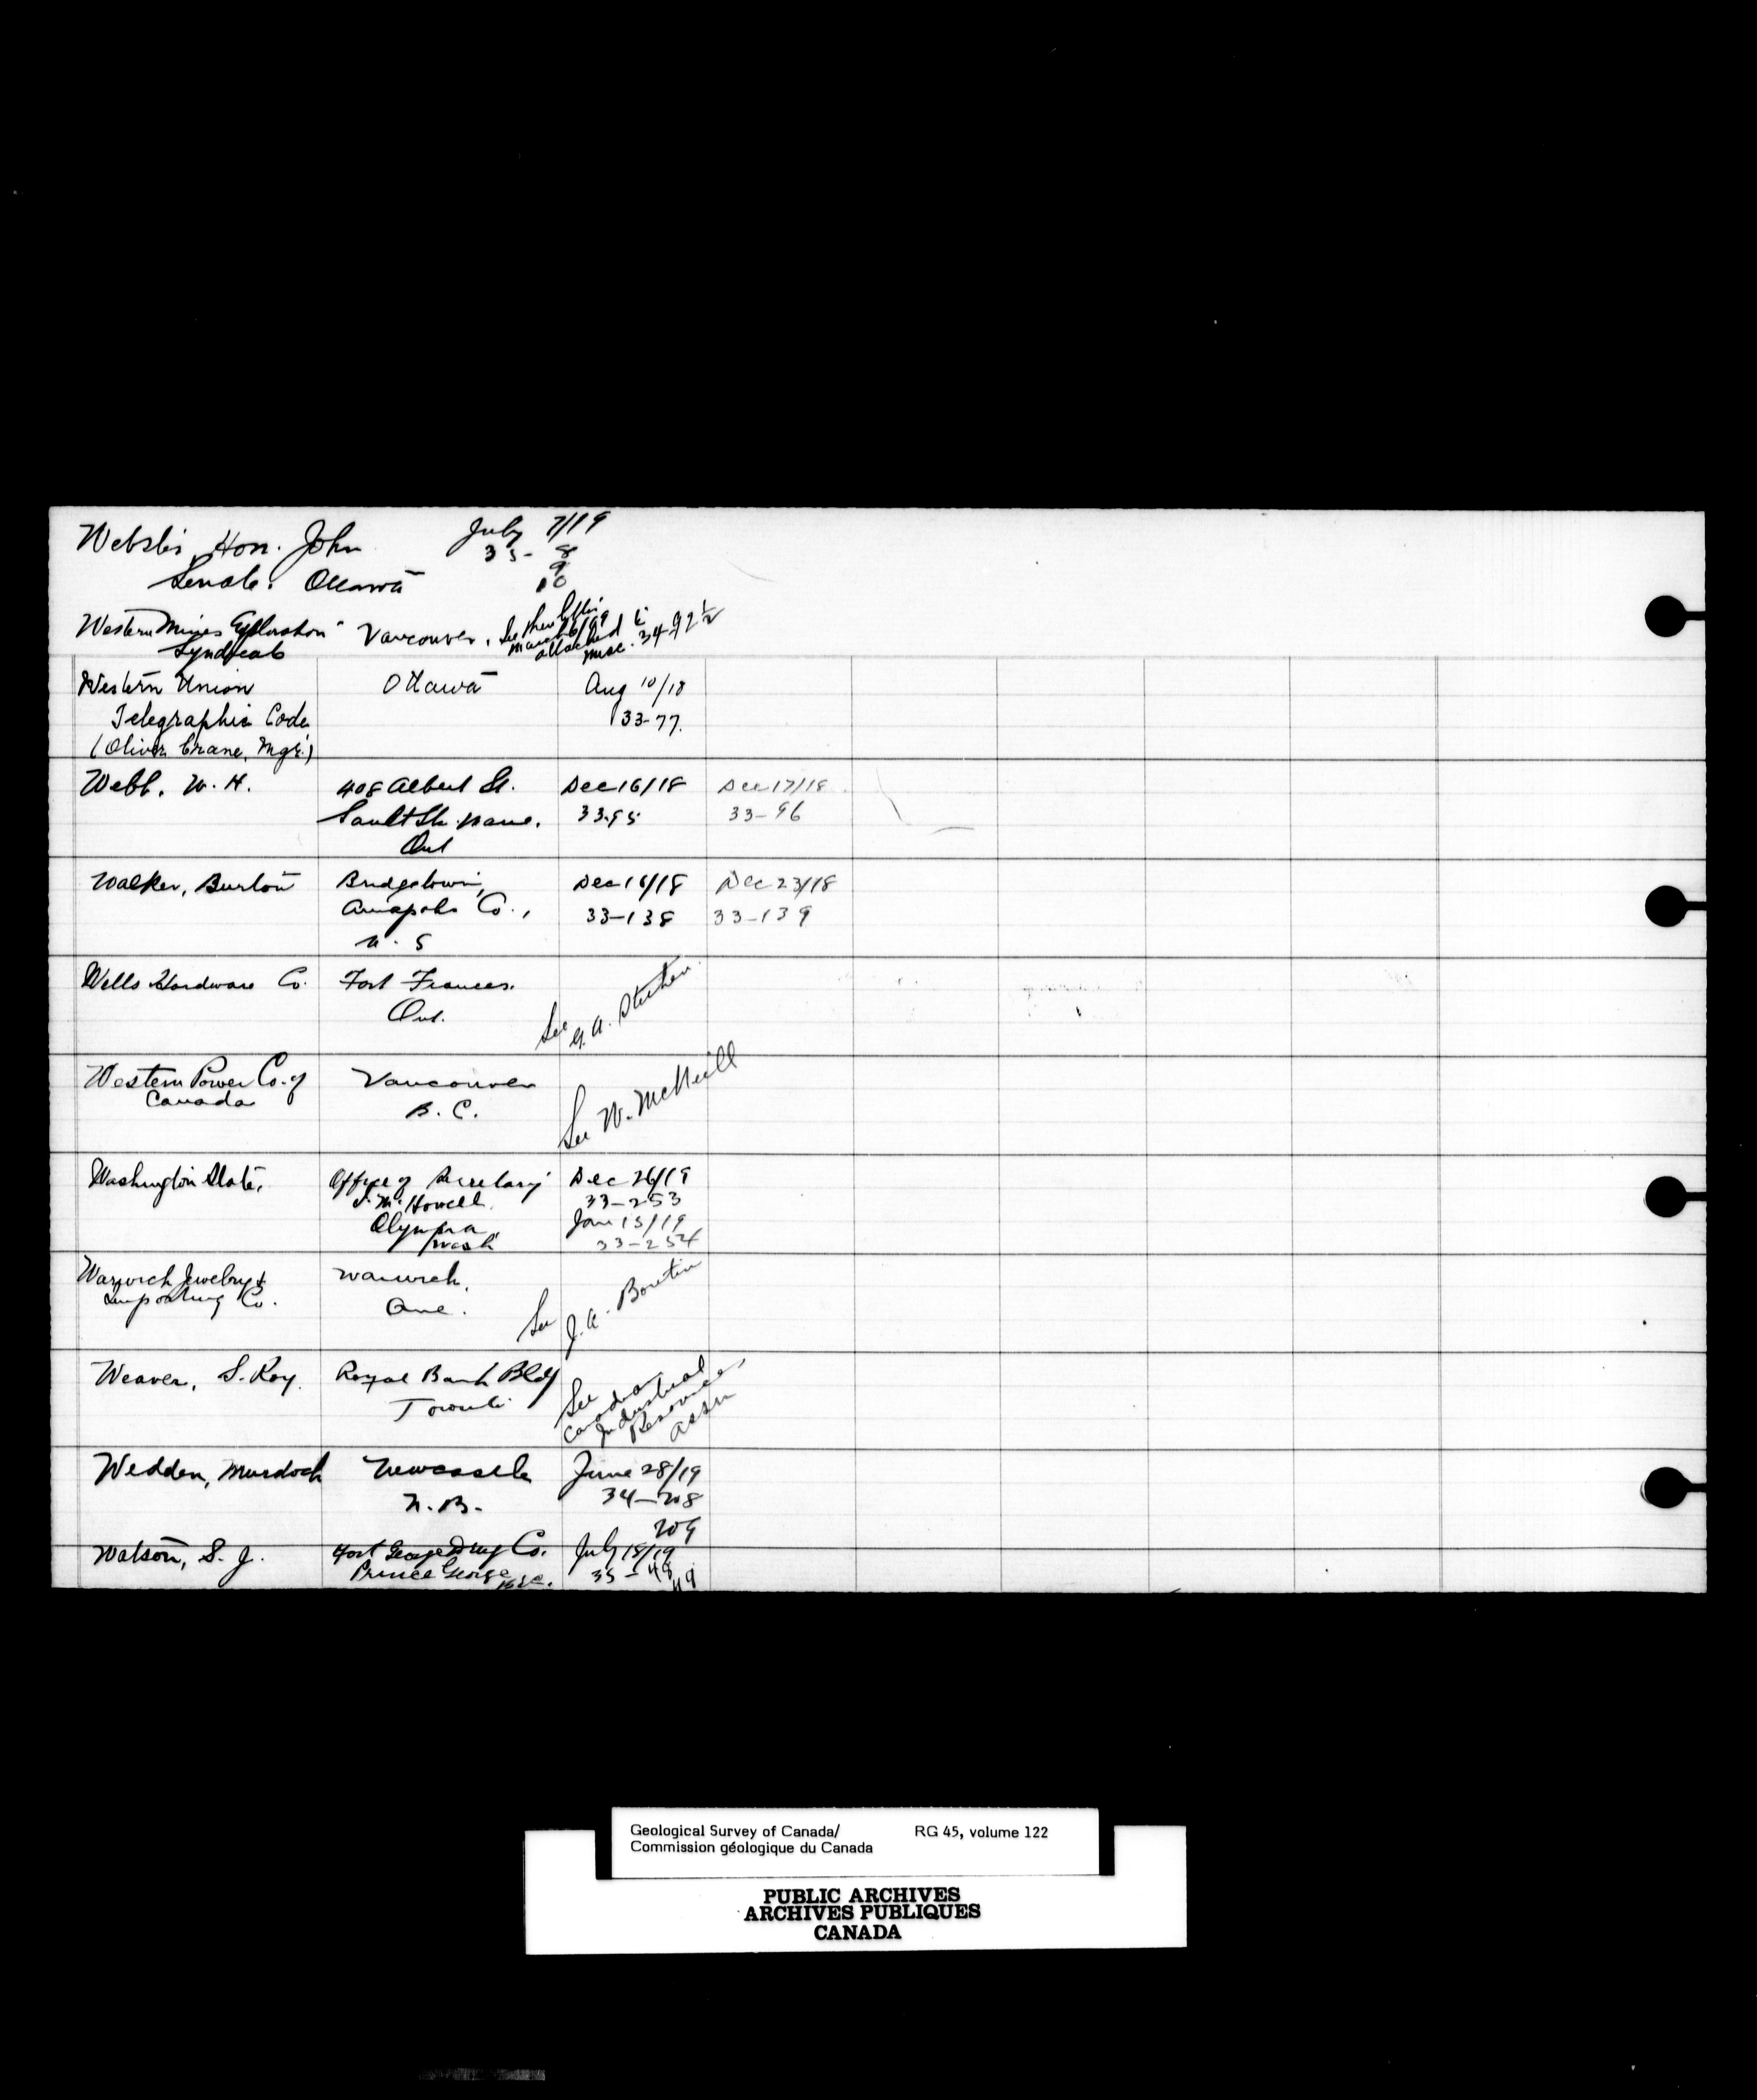 Webster, Hon. John July 7/19
35- 8
9
Senate. Ottawa 10
Western Mines Exploration Vancouver. See their letter
March 6/19
Syndicate attached to
Misc. 34-92½
Western Union Ottawa Aug 10/18
Telegraphic Code 33-77.
(Oliver Crane, Mgr.)
Webb, W. H. 408 Albert St. Dec 16/18 Dec 17/18
Sault Ste. Marie. 33-95 33-96
Ont
Walker, Burton Bridgetown, Dec 16/18 Dec 23/18
Annapolis Co., 33-138 33-139
N. S
Wells Hardware Co. Fort Frances.
Ont. See
Western Power Co. of Vancouver
Canada B. C. See W. McNeill
Washington State. Office of Secretary Dec 26/19
I. M. Howell 33-253
Olympia Jan 15/19
Wash 33-254
Warwick Jewelry & Warwick,
Importing Co. Que. See J. A. Boutin
Weaver, S. Roy. Royal Bank Bldg See
Toronto Canadian
Industrial
Resources
Assn
Wedden, Murdoch Newcastle June 28/19
N. B. 34-208
209
Watson, S. J. Fort George Drug Co. July 18/19
Prince George B.C. 35-48
49
Geological Survey of Canada/ RG 45, volume 122
Commission géologique du Canada
PUBLIC ARCHIVES
ARCHIVES PUBLIQUES
CANADA